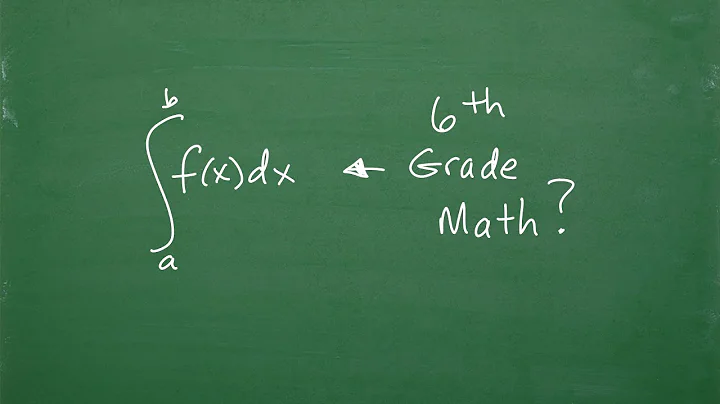 ∫ₐᵇ f(x)dx ← 6th
Grade
Math?